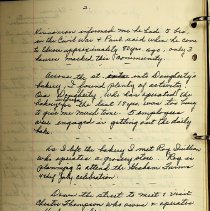 2.
Kinsman informed me he had to be
in the Civil War & Paul said when he came
to Elison approximately 8 yrs. ago, only 3
houses marked this community.
Across the st. enter into Daugherty's
bakery I found plenty of activity.
who has operated the
bakery for the last 18 yrs. was too busy
to give me much time. 3 employees
are engaged in getting out the daily
bake.
As I left the bakery I met Roy Sullivan
who operates a grocery store. Roy is
planning to attend the Graham Farms
4th of July celebration.
Down the street to meet & visit
Chester Thompson who owns & operates